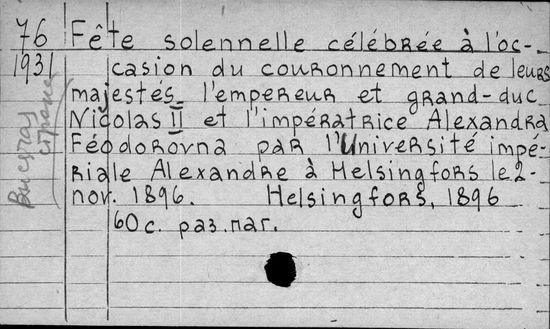 76 Fête solennelle célébrée à l'oc-
1931 casion du couronnement de leurs
majestés l'empereur et grand-duc
Nicolas II et l'impératrice Alexandra
Féodorovna par l'Université impé-
riale Alexandre à Helsingfors le 2-
nov. 1896. Helsingfors, 1896
60 с. раз. паг.